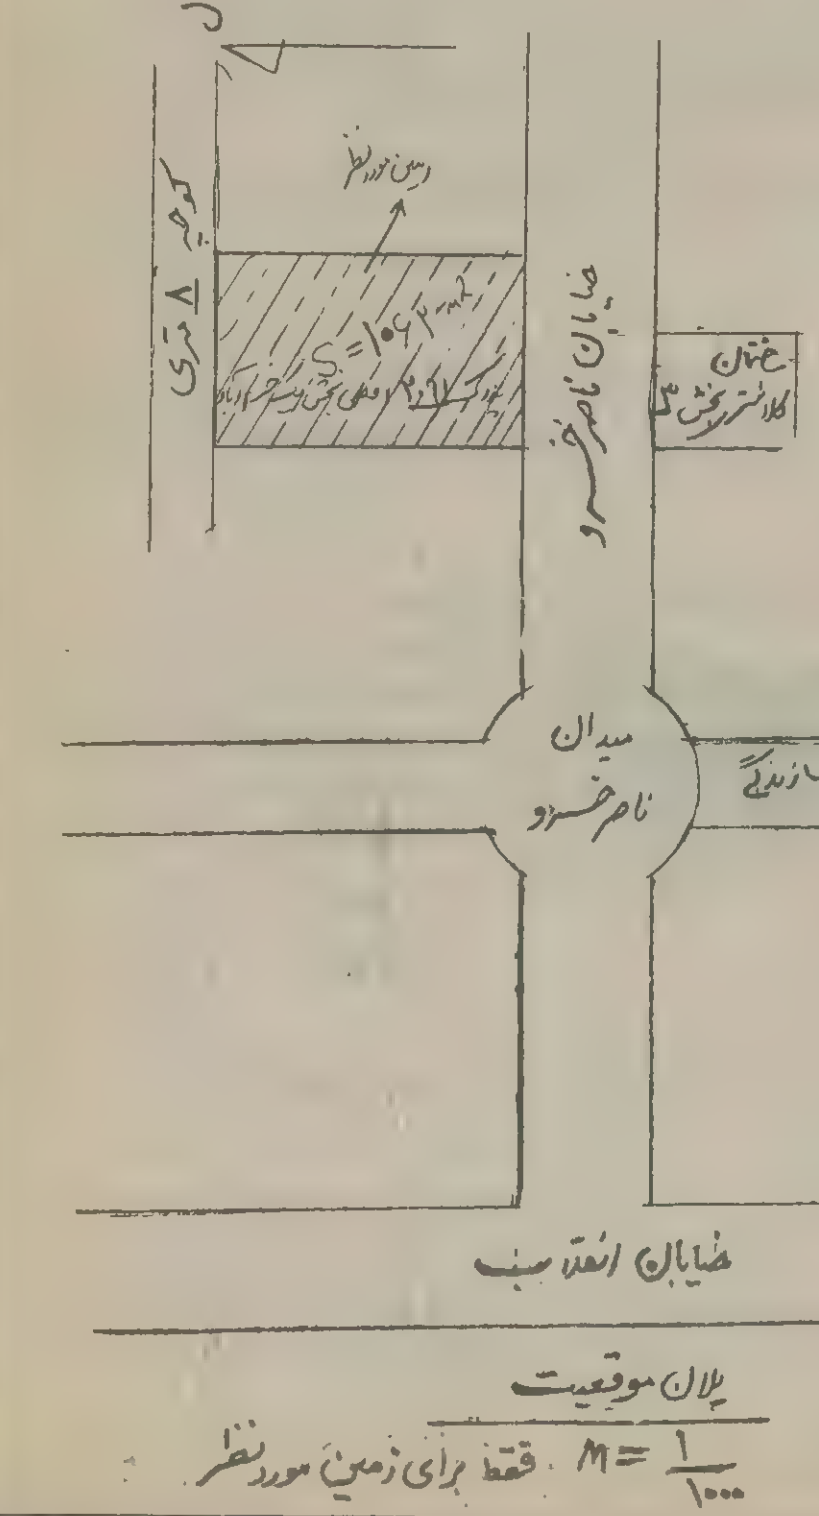 زمین مورد نظر
کوچه ۸ متری
S = ۱۰۶۲ m²
خیابان ناصر خسرو
کلانتر بخش
میدان
ناصر خسرو
خیابان انقلاب
پلان موقعیت
M = ۱/۱۰۰۰ فقط برای زمین مورد نظر